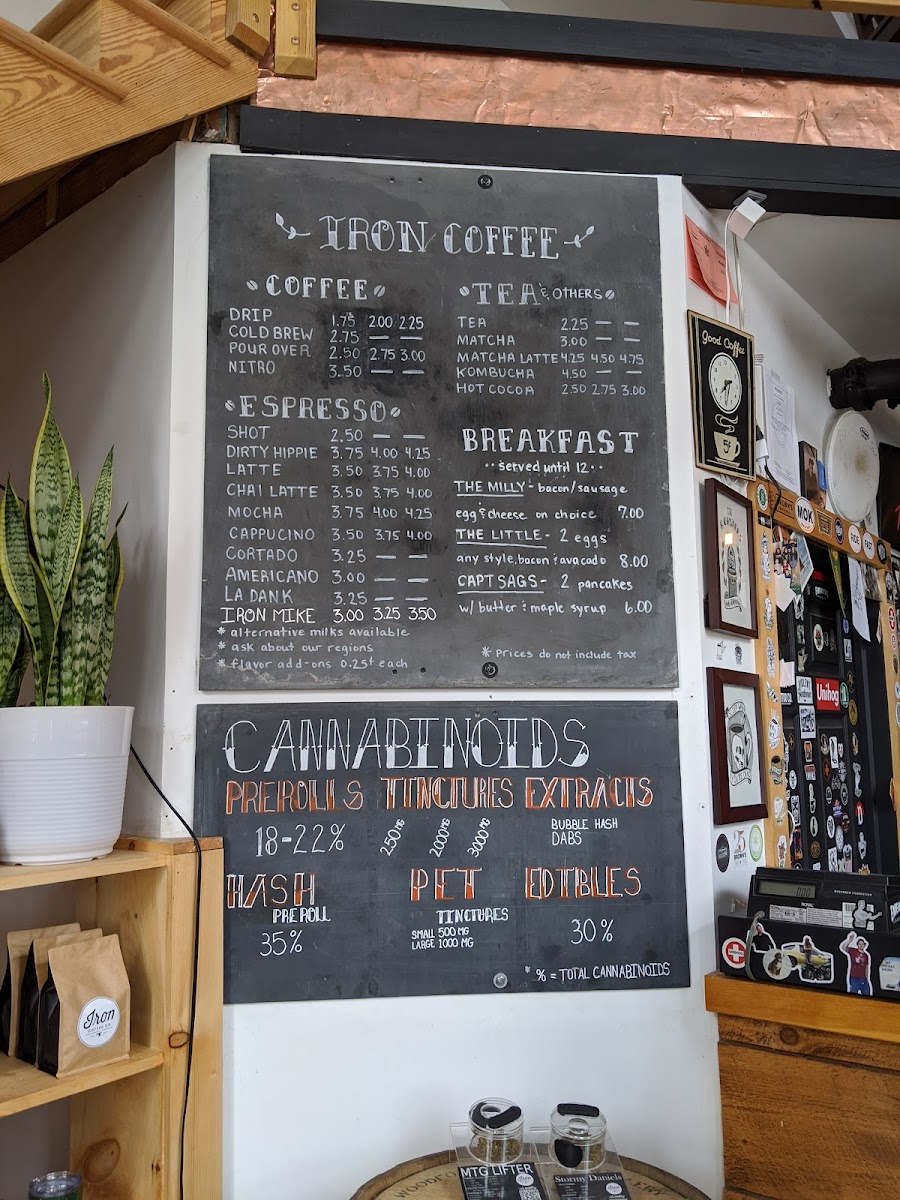 IRON COFFEE
COFFEE
DRIP 1.75 2.00 2.25
COLD BREW 2.75 — —
POUR OVER 2.50 2.75 3.00
NITRO 3.50 — —
ESPRESSO
SHOT 2.50 — —
DIRTY HIPPIE 3.75 4.00 4.25
LATTE 3.50 3.75 4.00
CHAI LATTE 3.50 3.75 4.00
MOCHA 3.75 4.00 4.25
CAPPUCINO 3.50 3.75 4.00
CORTADO 3.25 — —
AMERICANO 3.00 — —
LA DANK 3.25 — —
IRON MIKE 3.00 3.25 3.50
* alternative milks available
* ask about our regions
* flavor add-ons 0.25¢ each
TEA & OTHERS
TEA 2.25 — —
MATCHA 3.00 — —
MATCHA LATTE 4.25 4.50 4.75
KOMBUCHA 4.50 — —
HOT COCOA 2.50 2.75 3.00
BREAKFAST
··served until 12··
THE MILLY - bacon/sausage
egg & cheese on choice 7.00
THE LITTLE - 2 eggs
any style, bacon & avacado 8.00
CAPT SAGS - 2 pancakes
w/ butter & maple syrup 6.00
* Prices do not include tax
CANNABINOIDS
PREROLLS TINCTURES EXTRACTS
18-22%
250 MG
2000 MG
3000 MG
BUBBLE HASH
DABS
HASH
PREROLL
35%
PET
TINCTURES
SMALL 500 MG
LARGE 1000 MG
EDIBLES
30%
* % = TOTAL CANNABINOIDS
Good Coffee
5¢
MOK
Unihog
Iron
MTG LIFTER
Stormy Daniels